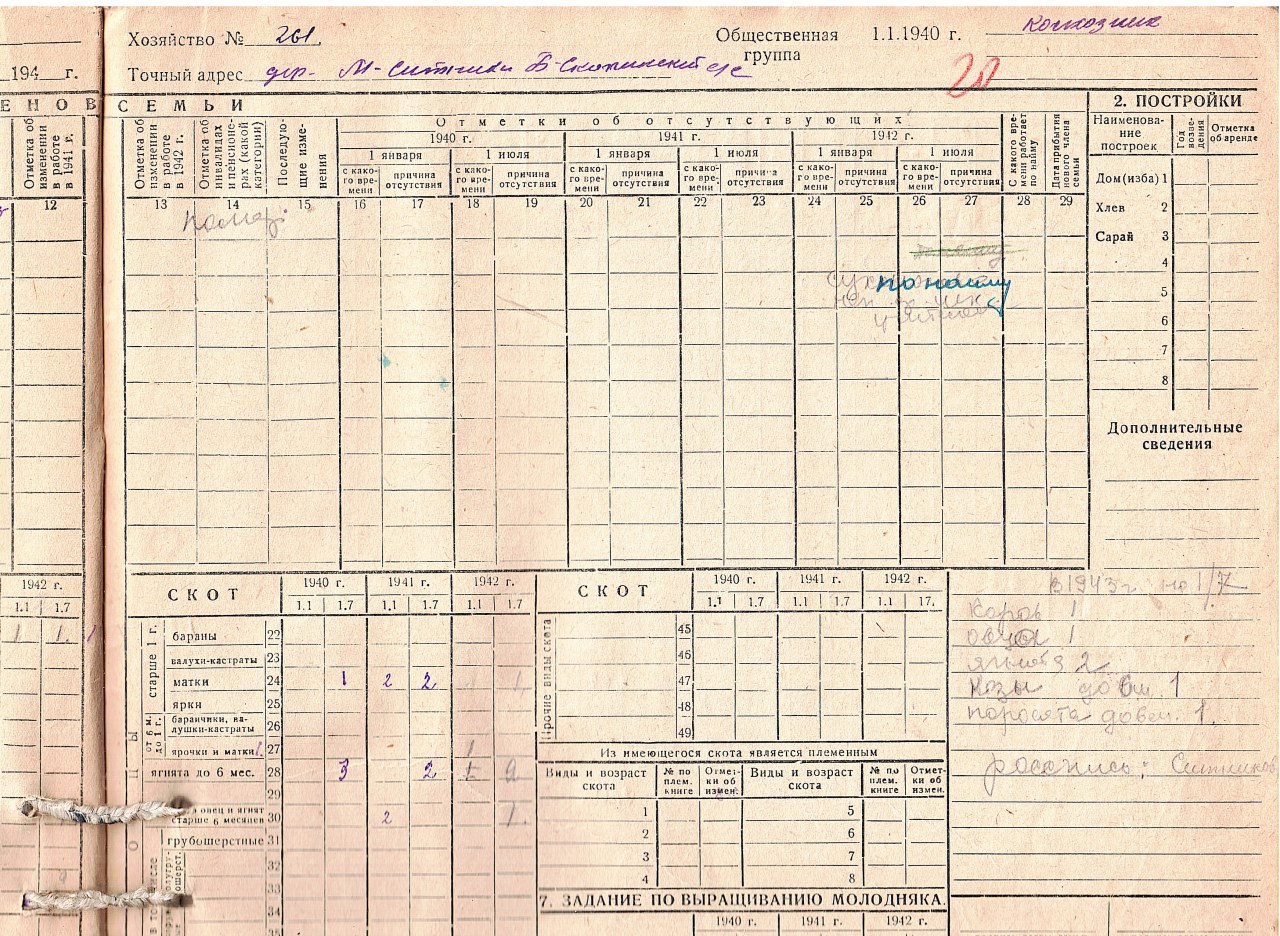 Хозяйство № 261.
Общественная группа 1.1.1940 г. Колхозник
194 г.
Точный адрес дер. М-Ситники Б-Скопинский с/с
20
ЕНОВ СЕМЬИ
2. ПОСТРОЙКИ
Отметка об изменении в работе в 1941 г.
Отметка об изменении в работе в 1942 г.
Отметка об инвалидах и пенсионерах (какой категории)
Последующие изменения
Отметки об отсутствующих
1940 г. 1941 г. 1942 г.
1 января 1 июля 1 января 1 июля 1 января 1 июля
с какого времени причина отсутствия с какого времени причина отсутствия с какого времени причина отсутствия с какого времени причина отсутствия с какого времени причина отсутствия с какого времени причина отсутствия
С какого времени работает по найму
Дата прибытия нового члена семьи
Наименование построек
Год возведения
Отметка об аренде
12 13 14 15 16 17 18 19 20 21 22 23 24 25 26 27 28 29
Дом(изба) 1
Хлев 2
Сарай 3
4
5
6
7
8
по найму
Дополнительные сведения
1942 г.
1.1 1.7
1 1. 1
СКОТ
1940 г. 1941 г. 1942 г.
1.1 1.7 1.1 1.7 1.1 1.7
старше 1 г.
бараны 22
валухи-кастраты 23
матки 24 1 2 2 1 1
ярки 25
от 6 м. до 1 г.
баранчики, валушки-кастраты 26
ярочки и матки 27 1
ягнята до 6 мес. 28 3 2 1 2
29
овец и ягнят старше 6 месяцев 30 2 1.
грубошерстные 31
32
33
34
35
СКОТ
1940 г. 1941 г. 1942 г.
1.1 1.7 1.1 1.7 1.1 17.
Прочие виды скота
45
46
47
48
49
Из имеющегося скота является племенным
Виды и возраст скота № по плем. книге Отметки об измен. Виды и возраст скота № по плем. книге Отметки об измен.
1 5
2 6
3 7
4 8
7. ЗАДАНИЕ ПО ВЫРАЩИВАНИЮ МОЛОДНЯКА.
1940 г. 1941 г. 1942 г.
в 1943 г. на 1/7
Коров 1
овцы 1
ягнята 2
Козы до 6 м. 1
поросята до 6 м. 1.
роспись: Ситников